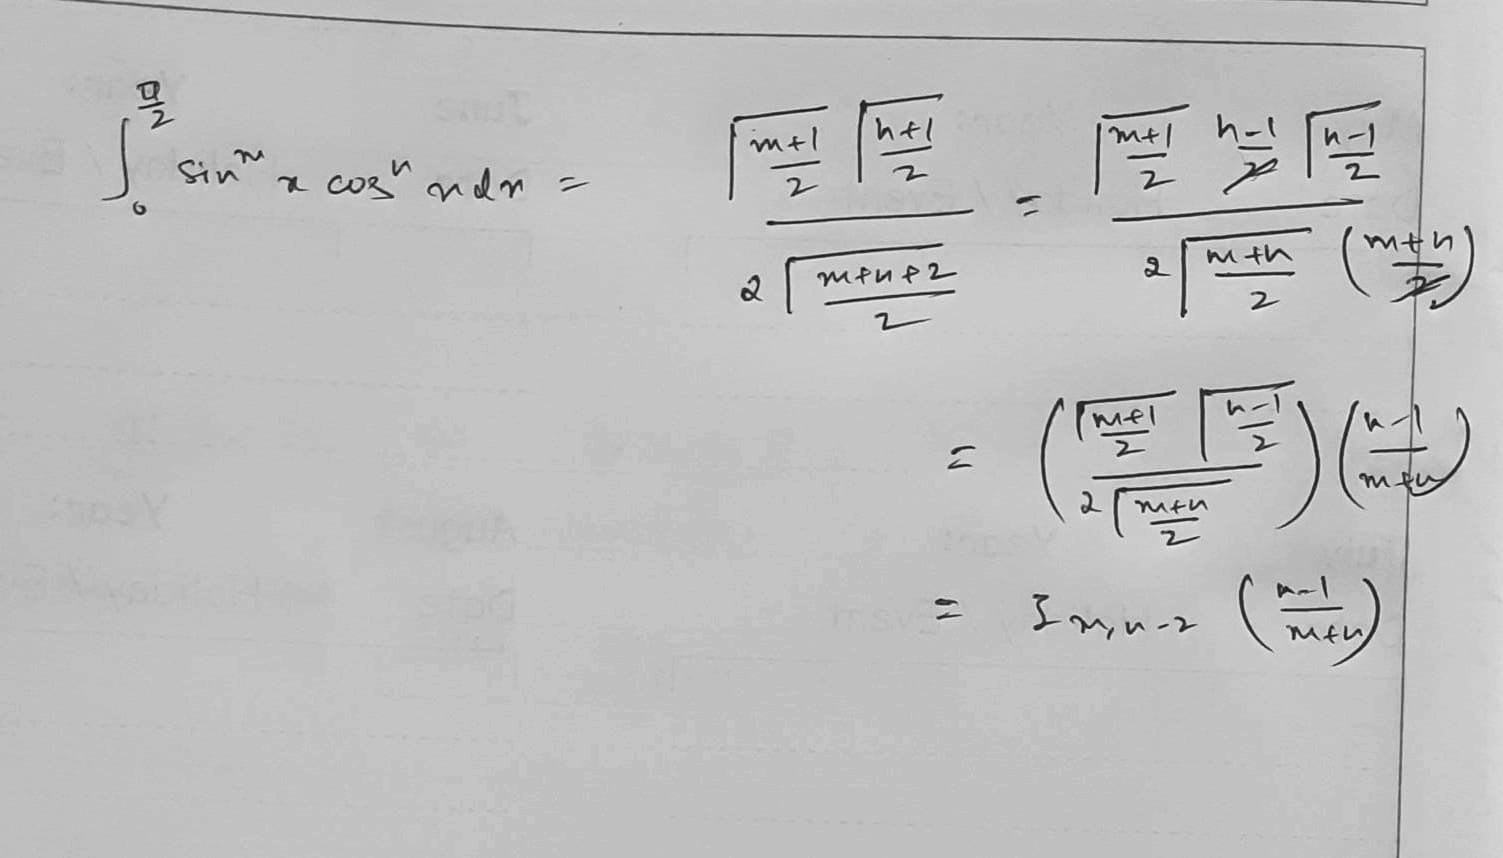 ∫₀^{π/2} sinᵐ x cosⁿ x dx = \frac{Γ\frac{m+1}{2} Γ\frac{n+1}{2}}{2 Γ\frac{m+n+2}{2}} = \frac{Γ\frac{m+1}{2} \frac{n-1}{2} Γ\frac{n-1}{2}}{2 Γ\frac{m+n}{2} (\frac{m+n}{2})}
= (\frac{Γ\frac{m+1}{2} Γ\frac{n-1}{2}}{2 Γ\frac{m+n}{2}}) (\frac{n-1}{m+n})
= I_{m,n-2} (\frac{n-1}{m+n})